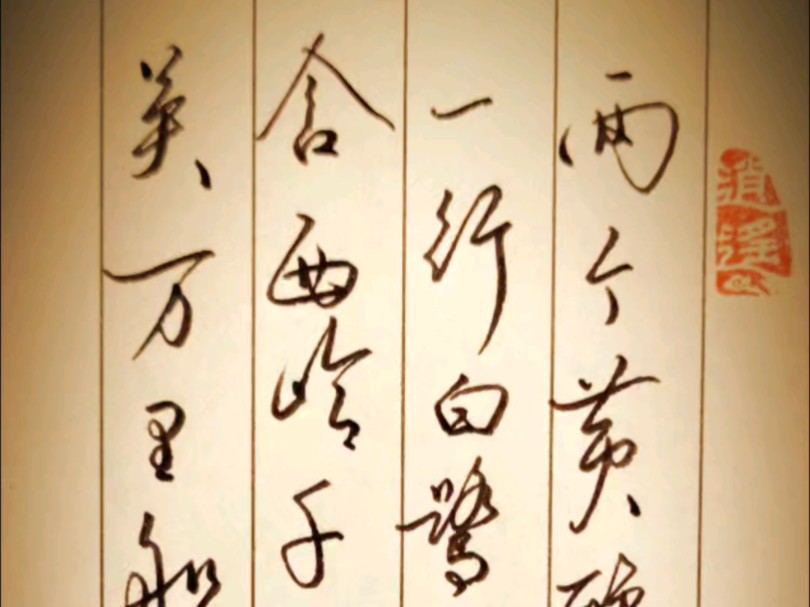 逍遥
两个黄
一行白鹭
含西岭千
吴万里船